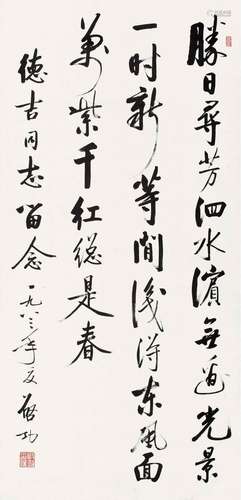 勝日尋芳泗水濱無邊光景
一时新等閒識得东風面
萬紫千红總是春
德吉同志留念一九八三年夏啟功